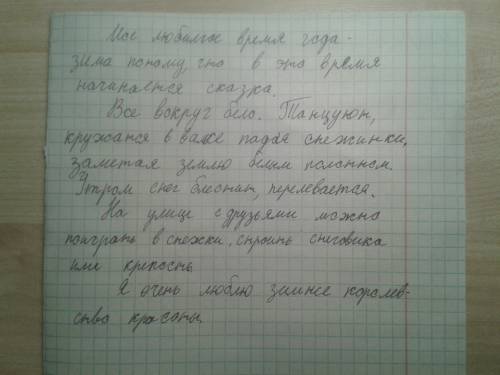 Мое любимое время года -
зима потому, что в это время
начинается сказка.
Все вокруг бело. Танцуют,
кружатся в вальсе падая снежинки,
заметая землю белым полотном.
Утром снег блестит, переливается.
На улице с друзьями можно
поиграть в снежки, строить снеговика
или крепость
Я очень люблю зимнее королев-
ство красоты.